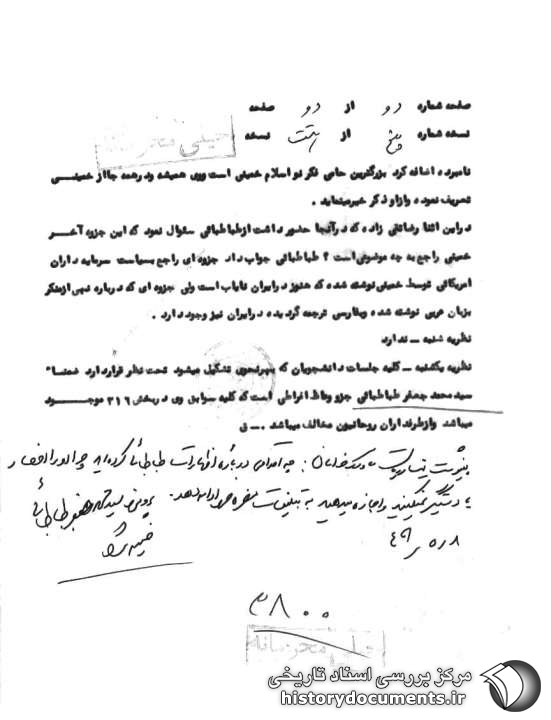 صفحه شماره دو از دو صفحه
نسخه شماره پنج از هشت نسخه
خیلی محرمانه
نامبرده اضافه کرد بزرگترین حامی فکر نو اسلام خمینی است ووی همیشه ودرهمه جا از خمینی
تعریف نموده وازاو ذکر خیرمینماید .
دراین اثنا رضائی زاده که درآنجا حضور داشت ازطباطبائی سئوال نمود که این جزوه آخر
خمینی راجع به چه موضوعی است ؟ طباطبائی جواب داد جزوه ای راجع بسیاست سرمایه داران
امریکائی توسط خمینی نوشته شده که هنوز درایران نایاب است ولی جزوه ای که درباره نهی ازمنکر
بزبان عربی نوشته شده وبفارسی ترجمه گردیده درایران نیز وجود دارد .
نظریه شنبه ـ ندارد
نظریه یکشنبه ـ کلیه جلسات دانشجویان که بهرنحوی تشکیل میشود تحت نظر قرار دارد ضمنا"
سید محمد جعفر طباطبائی جزو وعاظ افراطی است که کلیه سوابق وی دربخش ۳۱۶ موجود
میباشد وازطرفداران روحانیون مخالف میباشد . ـ ق
چه اقدامی درباره اظهارات طباطبائی کرده‌اید چرا او را احضار
یا دستگیر نمیکنید و اجازه میدهید به تبلیغات مضره خود ادامه دهد.
۴۹/۵/۸
۳۸۰۰
خیلی محرمانه
مرکز بررسی اسناد تاریخی
historydocuments.ir